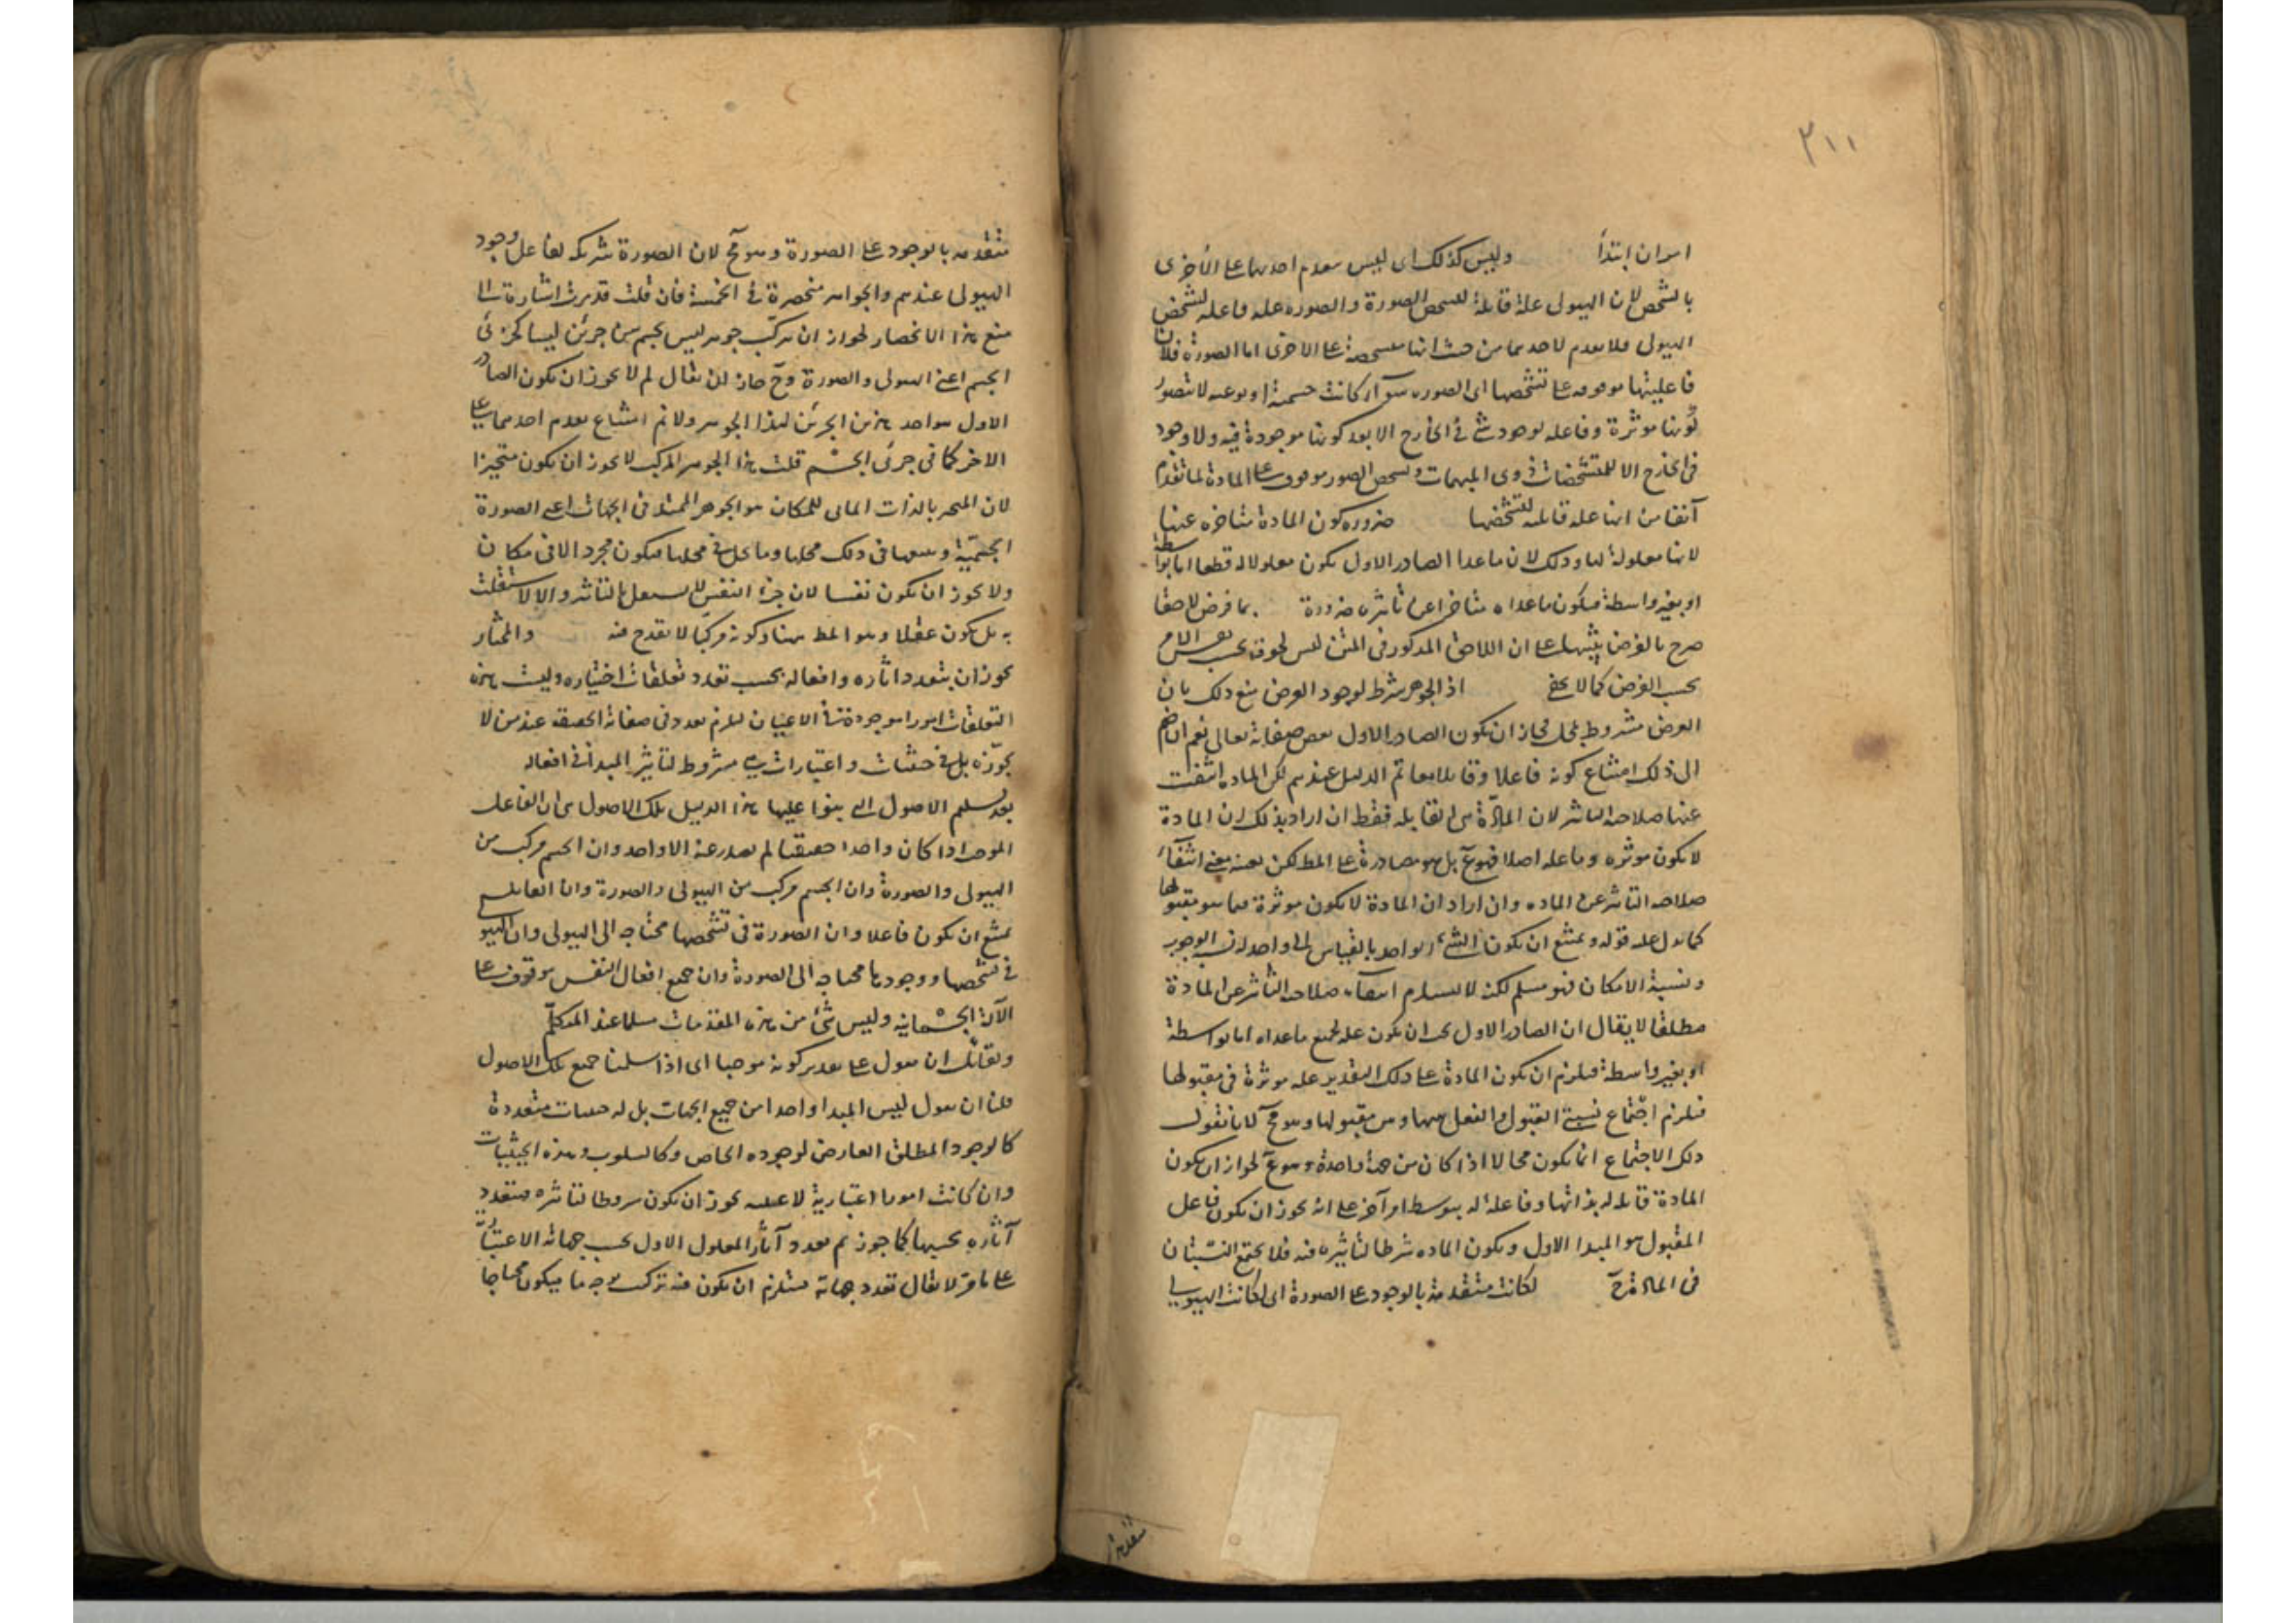 ٣١١
امران ابتدأ وليس كذلك اى ليس تقدم احديهما على الأخرى
بالشخص لان الهيولى علة قابلة لتشخص الصورة والصورة علة فاعلة لتشخص
الهيولى فلا تقدم لاحديهما من حيث انها متشخصة على الاخرى اما الصورة فلان
فاعليتها موقوفة على تشخصها اى الصورة سواء كانت جسمية او نوعية لا تتصور
كونها موثرة وفاعلة لوجود شئ فى الخارج الا بعد كونها موجودة فيه ولا وجود
فى الخارج الا للمتشخصات ذوى المهيات وتشخص الصور موقوف على المادة لما تقدم
آنفا من انها علة قابلة لتشخصها ضرورة كون المادة متأخرة عنها
لانها معلولة لها وذلك لان ما عدا الصادر الاول يكون معلولا له قطعا اما بواسطة
او بغير واسطة فيكون ما عداه متأخرا عن تأثيره ضرورة بما فرض لاحقا
صرح بالفرض تنبيها على ان اللاحق المذكور فى المتن ليس لحوقه بحسب نفس الامر
بحسب الفرض كما لا يخفى اذ الجوهر شرط لوجود العرض منع ذلك بان
العرض مشروط بمحل فجاز ان يكون الصادر الاول بعض صفاته تعالى نعم ان ضم
الى ذلك امتناع كونه فاعلا وقابلا معا تم الدليل عندهم لكن المادة انتفت
عنها صلاحية التاثير لان المادة هى القابلة فقط ان اراد بذلك ان المادة
لا تكون موثرة وفاعلة اصلا فهو ع بل هو مصادرة على المط لكن بعينه معنى انتفاء
صلاحية التاثير عن المادة وان اراد ان المادة لا تكون موثرة فيما هو مقبولها
كما دل عليه قوله ويمتنع ان يكون الشئ الواحد بالقياس الى واحد له نسبة الوجوب
ونسبة الامكان فهو مسلم لكنه لا يستلزم انتفاء صلاحية التأثير عن المادة
مطلقا لا يقال ان الصادر الاول يجب ان يكون علة لجميع ما عداه اما بواسطة
او بغير واسطة فيلزم ان يكون المادة على ذلك التقدير علة موثرة فى مقبولها
فيلزم اجتماع نسبتى القبول والفعل بينها وبين مقبولها وهو مح لانا نقول
ذلك الاجتماع انما يكون محالا اذا كان من جهة واحدة وهو ع لجواز ان يكون
المادة قابلة له بذاتها وفاعلة له بتوسط امر آخر على انه يجوز ان يكون فاعل
المقبول هو المبدا الاول ويكون المادة شرطا لتأثيره فيه فلا يجتمع النسبتان
فى المادة ح لكانت متقدمة بالوجود على الصورة اى لكانت الهيولى
متقدمة
متقدمة بالوجود على الصورة وهو مح لان الصورة شريكة لفاعل وجود
الهيولى عندهم والجواهر منحصرة فى الخمسة فان قلت قد مرت اشارة الى
منع هذا الانحصار لجواز ان يتركب جوهر ليس بجسم من جزئين ليسا كجزئى
الجسم اعنى الهيولى والصورة وح جاز ان يقال لم لا يجوز ان يكون الصادر
الاول هو احد هذين الجزئين لهذا الجوهر ولا نم امتناع تقدم احدهما على
الاخر كما فى جزئى الجسم قلت هذا الجوهر المركب لا يجوز ان يكون متحيزا
لان المتحيز بالذات المالى للمكان هو الجوهر الممتد فى الجهات اعنى الصورة
الجسمية ويتبعها فى ذلك محلها وما يحل فى محلها فيكون مجردا لا فى مكان
ولا يجوز ان يكون نفسا لان جزء النفس لا يستقل بالتأثير والا لاستقلت
به بل يكون عقلا وهو المط هنا وكونه مركبا لا يقدح فيه والمختار
يجوز ان يتعدد اثاره وافعاله بحسب تعدد تعلقات اختياره وليست هذه
التعلقات امورا موجودة فى الاعيان ليلزم تعدد فى صفاته الحقيقية عند من لا
يجوزه بل هى حيثيات واعتبارات هى شروط لتأثير المبدأ فى افعاله
بعد تسليم الاصول التى بنوا عليها هذا الدليل تلك الاصول هى ان الفاعل
الموجب اذا كان واحدا حقيقيا لم يصدر عنه الا واحد وان الجسم مركب من
الهيولى والصورة وان الجسم مركب من الهيولى والصورة وان القابل
يمتنع ان يكون فاعلا وان الصورة فى تشخصها محتاجة الى الهيولى وان الهيولى
فى تشخصها ووجودها محتاجة الى الصورة وان جميع افعال النفس موقوف على
الآلة الجسمانية وليس شئ من هذه المقدمات مسلما عند المتكلم
ولقائل ان يقول على تقدير كونه موجبا اى اذا سلمنا جميع تلك الاصول
فلنا ان نقول ليس المبدا واحدا من جميع الجهات بل له حيثيات متعددة
كالوجود المطلق العارض لوجوده الخاص وكالسلوب وهذه الحيثيات
وان كانت امورا اعتبارية لا عينية يجوز ان يكون شروطا لتأثيره فيتعدد
آثاره بحسبها كما جوزتم تعدد آثار المعلول الاول بحسب جهاته الاعتبارية
على ما مر لا يقال تعدد جهاته يستلزم ان يكون فيه تركب بوجه ما فيكون محتاجا